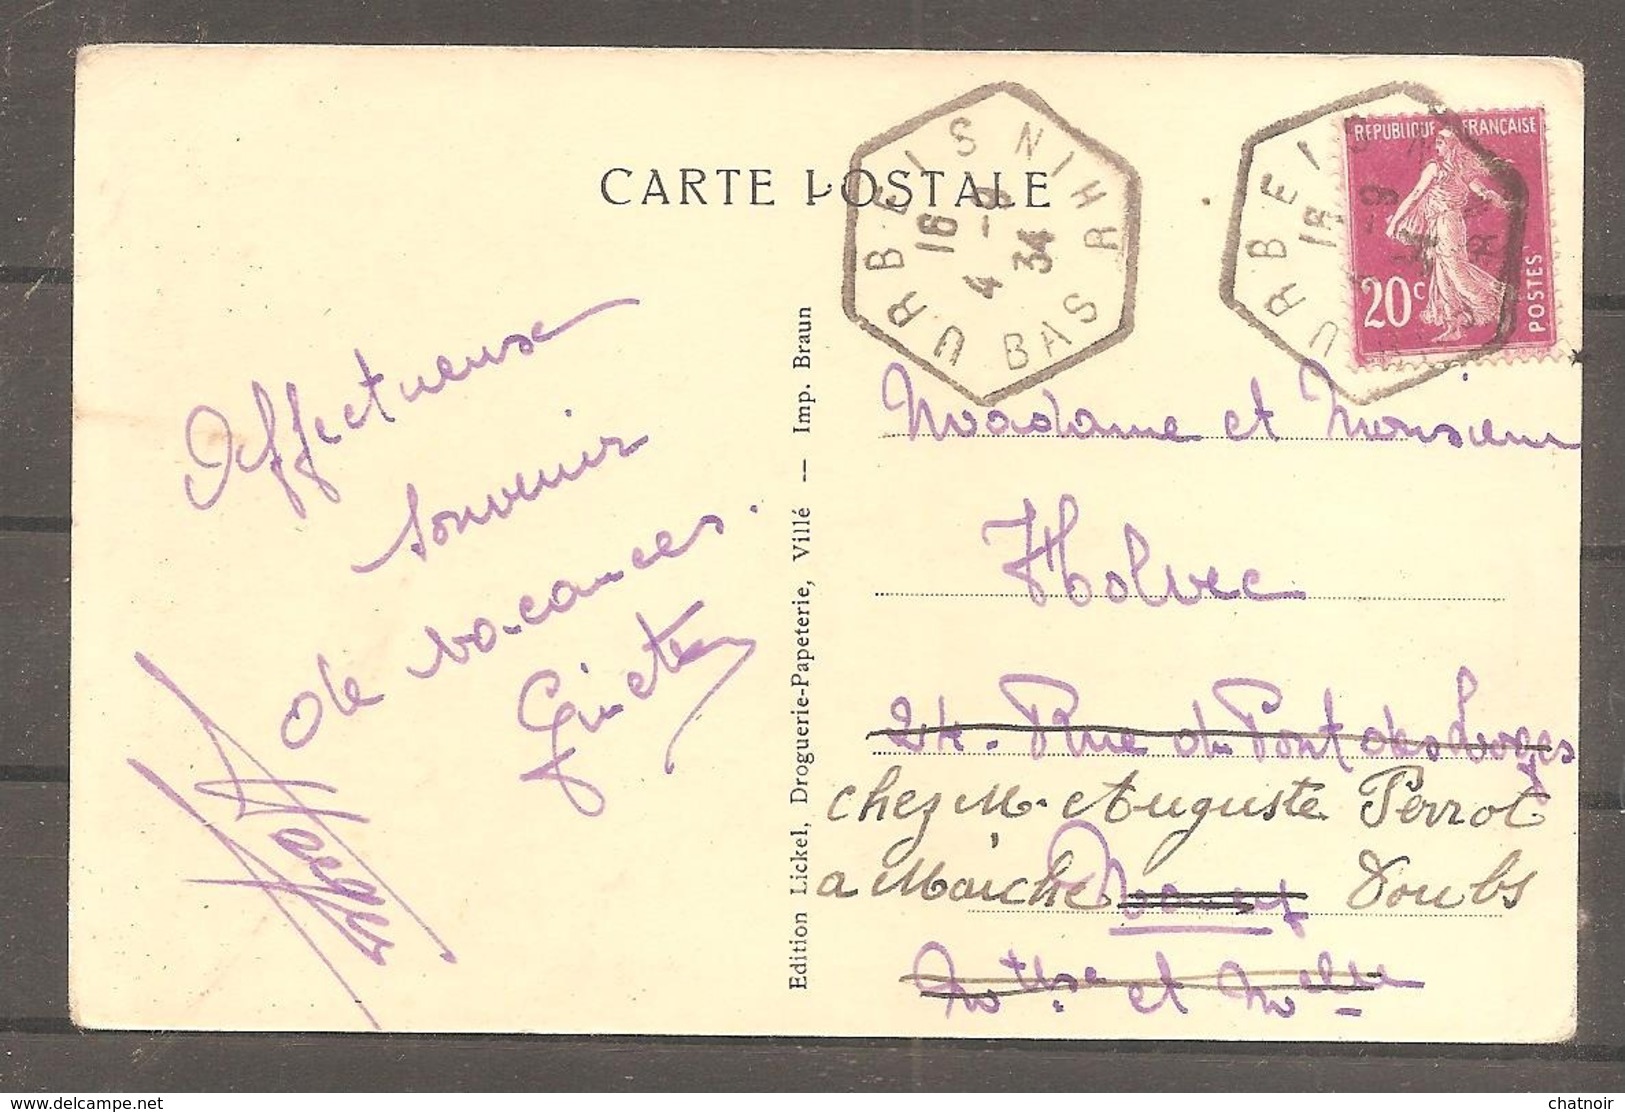 CARTE POSTALE
URBEIS
BAS RHIN
16
4 -9
34
URBEIS
REPUBLIQUE FRANÇAISE
20c
POSTES
Affectueux
souvenir
de vacances.
Ginette
Edition Lickel, Droguerie-Papeterie, Villé — Imp. Braun
Madame et Monsieur
Holvec
24. Rue du Pont des Loges
chez M. Auguste Perrot
a Maîche Nancy Doubs
Mthe et Melle
chatnoir